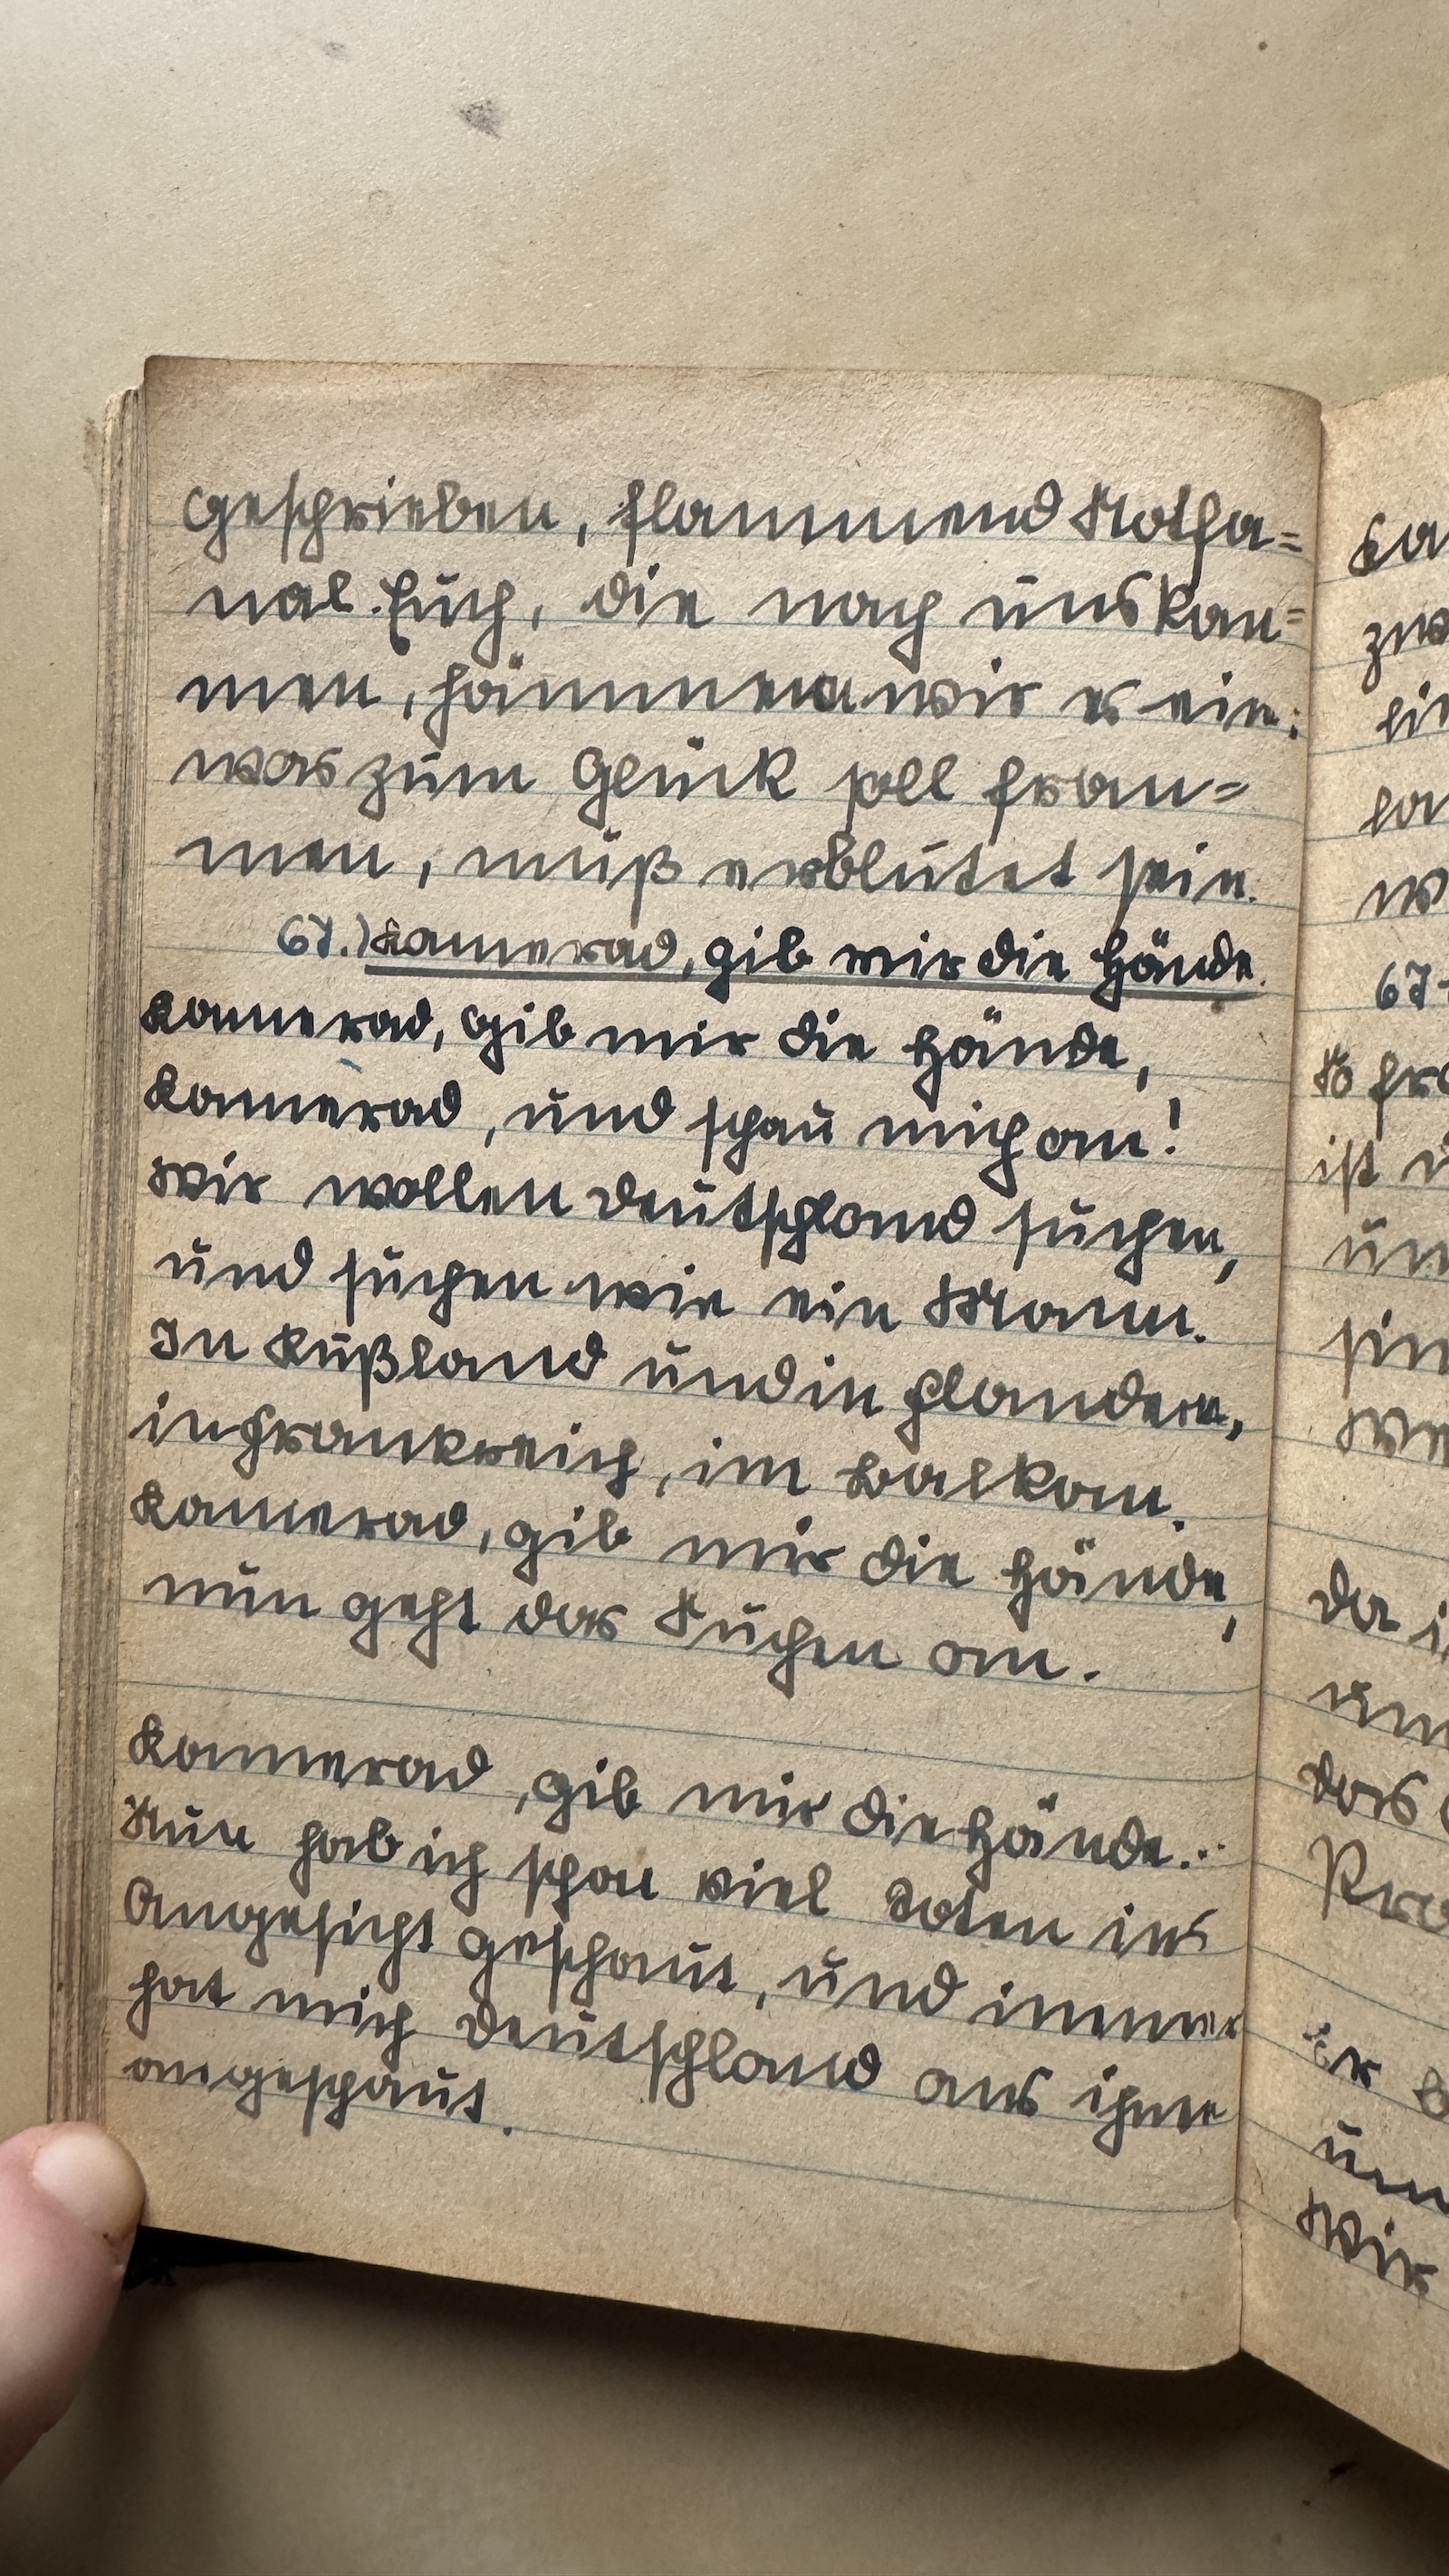 geschrieben, flammend Notfa=
nal. Euch, die nach uns kom=
men, hämmern wir es ein:
was zum Glück soll from=
men, muß erblutet sein.
67.) Kamerad, gib mir die Hände.
Kamerad, gib mir die Hände,
Kamerad, und schau mich an!
Wir wollen Deutschland suchen,
und suchen wie ein Mann.
In Rußland und in Flandern,
in Frankreich, im Balkan.
Kamerad, gib mir die Hände,
nun geht das Suchen an.
Kamerad, gib mir die Hände...
Nun hab ich schon viel Toten ins
Angesicht geschaut, und immer
hat mich Deutschland aus ihm
angeschaut.
67
ist
Wir